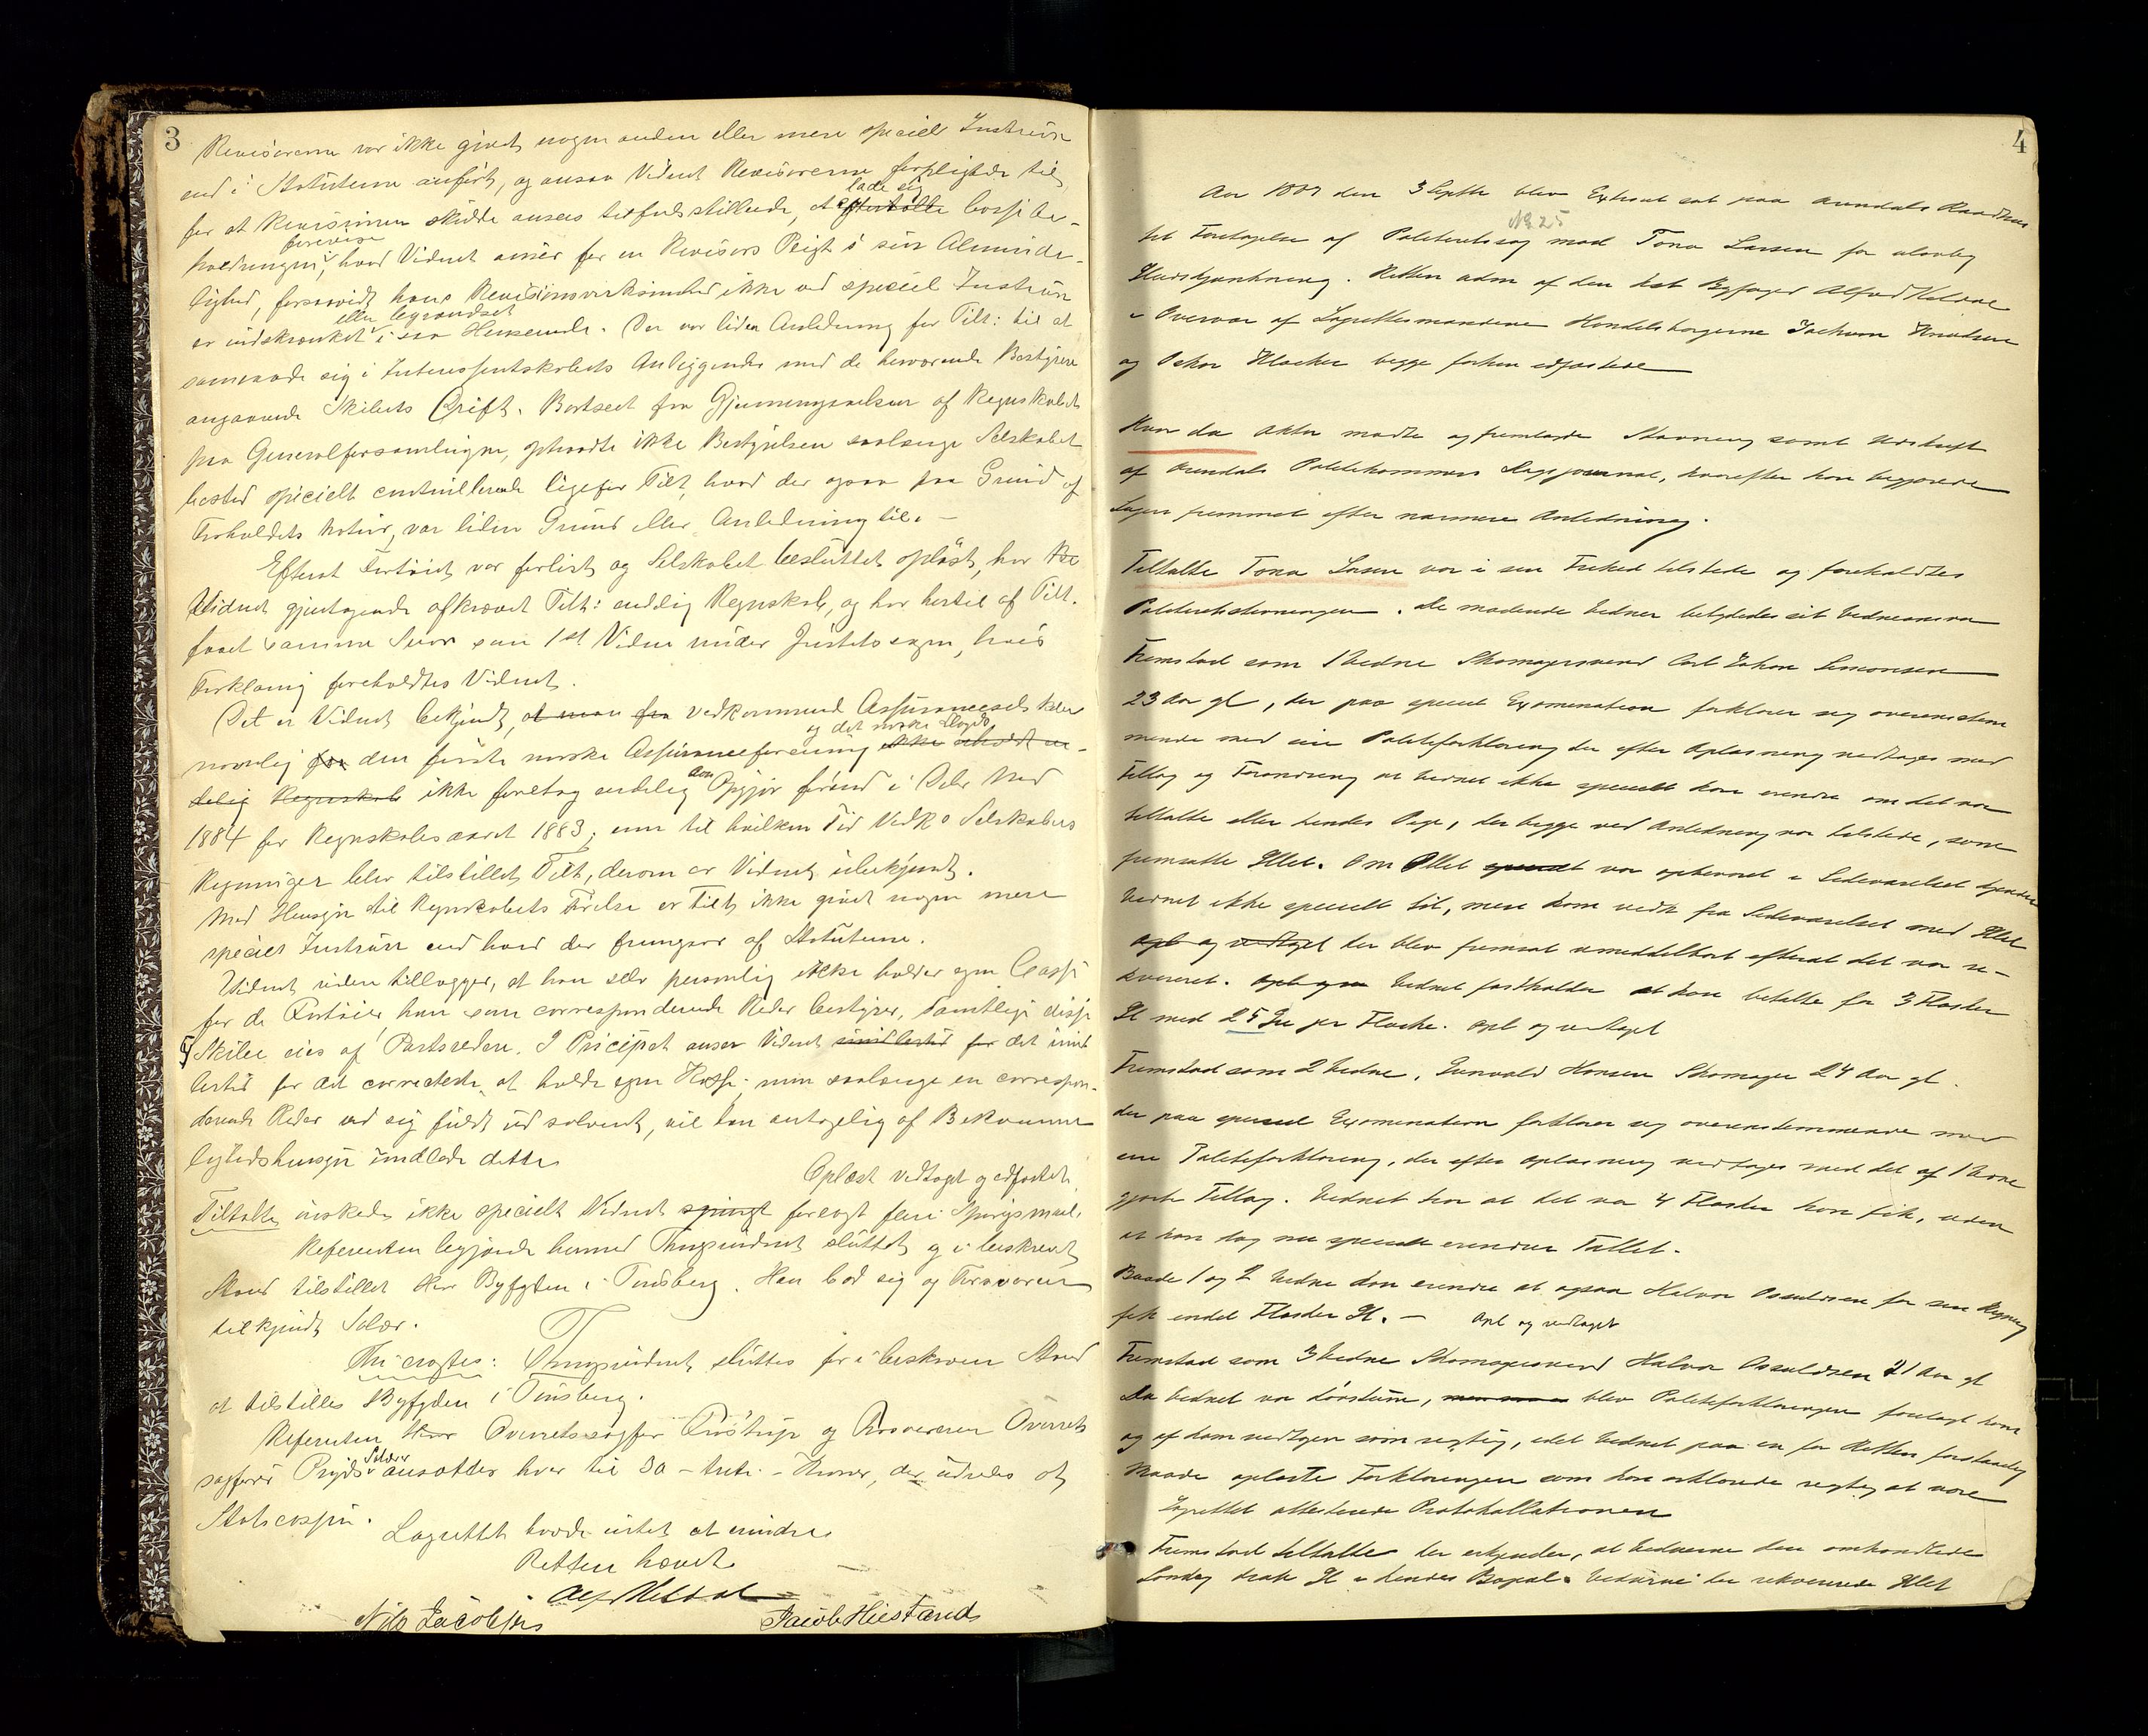 3
Revisorerne var ikke givet nogen anden eller mere speciel Instrux
end i Statuterne anført, og ansaa Vidnet Revisorerne forpligtede til,
lade sig
for at Revisionen skulde ansees tilfredsstillende, at efterholde Cassibe-
forevise
holdningen, hvad Vidnet anser for en Revisors Pligt i sin Alminde-
lighed, forsaavidt hans Revisionsvirksomhed ikke ved speciel Instrux
eller begrændset
er indskrænket i saa Henseende. Der var liden Anledning for Tilt: til at
samraade sig i Interessentskabets Anliggender med de herværende Bestyrere
angaaende Skibets Drift. Bortseet fra Gjennemgaaelsen af Regnskabet
paa Generalforsamlingen, optraadte ikke Bestyrelsen saalænge Selskabet
bestod specielt controllerende ligefor Tilt, hvad der ogsaa paa Grund af
Forholdets Natur, var liden Grund eller Anledning til. –
Efterat Fartøiet var forlist og Selskabet besluttet opløst, har
Vidnet gjentagende afkrævet Tilt: endelig Regnskab, og har hertil af Tilt.
faaet samme Svar som 1st Vidne under Justitssagen, hvis
Forklaring foreholdtes Vidnet.
Det er Vidnet bekjendt, at man fra vedkommende Assuranceselskaber
og det norske Lloyds
navnlig fra den første norske Assuranceforening ikke erholdt en-
delig Regnskab ikke foretog endelig Opgjør førend i Del
1884 for Regnskabsaaret 1883; men til hvilken Tid Vedk Selskabers
Regninger blev tilstillet Tilt, derom er Vidnet ubekjendt.
Med Hensyn til Regnskabets Førelse er Tilt, ikke givet nogen mere
speciel Instrux end hvad der fremgaar af Statuterne.
Vidnet videre tillægger, at han selv personlig ikke holder egen Cassa
for de Fartøier han som correspondende Reder bestyrer, Samtlige disse
Skibe eies af Partsredere. I Principet anser Vidnet imidlertid for det imid
lertid for det correcteste, at holde egen Kasse; men saalænge en correspon-
derende Reder ved sig fuldt ud solvent, vil han antagelig af Bekvemme
lighedshensyn undlade dette.
Oplæst vedtaget og edfæstet.
Tiltalte ønskede ikke specielt Vidnet spurgt forelagt flere Spørgsmaal.
Referenten begjærede hermed Thingsvidnet sluttet og i beskrevet
Stand tilstillet Herr Byfogden i Tønsberg. Han bad sig og Forsvareren
tilkjendt Salær.
Thi eragtes: Thingsvidnet sluttes for i beskreven Stand
at tilstilles Byfogden i Tønsberg.
Referenten Herr Overretssagfør og Forsvareren Overrets
Salær
sagfører ansættes hver til 30 – treti – Kroner, der udredes af
Statscassen.
Lagrettet havde intet at erindre
Retten hævet
Alf Kildal
Nils Jacobsen
4
Aar 1887 den 3 Septbr blev Extraret sat paa Arendals Raadhuus
No 25
til Foretagelse af Politiretssag mod Tona Larsen for ulovlig
Øludskjænkning. Retten adm af den kst Byfoged Alfred
i Overvær af Lagrettesmændene Handelsborgerne Jochum Knudsen
og Oskar begge forhen edfæstede
Hvor da Aktor mødte og fremlagde Stævning samt Udskrift
af Arendals Politikammers Dagsjournal, hvorefter han begjærede
Sagen fremmet efter nærmere Anledning.
Tiltalte Tona Larsen var i sin Frihed tilstede og foreholdtes
Politiretsstævningen. De mødende Vidner betydedes sit Vidneansvar
Fremstod som 1 Vidne Skomagersvend Carl Johan Simonsen
23 Aar gl, der paa speciel Examination forklarer sig overensstem
mende med sin Politiforklaring der efter Oplæsning vedtages med
Tillæg og Forandring at Vidnet ikke specielt kan erindre om det var
tiltalte eller hendes Pige, der begge ved Anledning var tilstede, som
fremsatte Øllet. Om Øllet specielt var opbevaret i Sideværelset kjender
Vidnet ikke specielt til, men kom vedk fra Sideværelset med Øllet
Opl og vedtaget der blev fremsat umiddelbart efterat det var re-
kvireret. Vidnet fastholder at han betalte for 3 Flasker
Øl med 25 Øre pr Flaske. Opl og vedtaget
Fremstod som 2 Vidne, Gunvald Hansen Skomager 24 Aar gl.
der paa speciel Examination forklarer sig overensstemmende med
sin Politiforklaring, der efter Oplæsning vedtages med det af 1 Vidne
gjorte Tillæg. Vidnet tror at det var 4 Flasker han fik, uden
at han dog nu specielt erindrer Tallet.
Baade 1 og 2 Vidne kan erindre at ogsaa Halvor Osuldsen for sin Regning
fik endel Flasker Øl. – Opl og vedtaget
Fremstod som 3 Vidne Skomagersvend Halvor Osuldsen 21 Aar gl
Da Vidnet var døvstum, blev Politiforklaringen forelagt ham
og af ham vedtagen som rigtig, idet Vidnet paa en for Retten forstaaelig
Maade oplæste Forklaringen som han erklærede rigtig at være
Lagrettet attesterede Protokollationen
Fremstod tiltalte der erkjender, at Vidnerne den omhandlede
Søndag drak Øl i hendes Bopæl. Vidnerne der rekvirerede Øllet